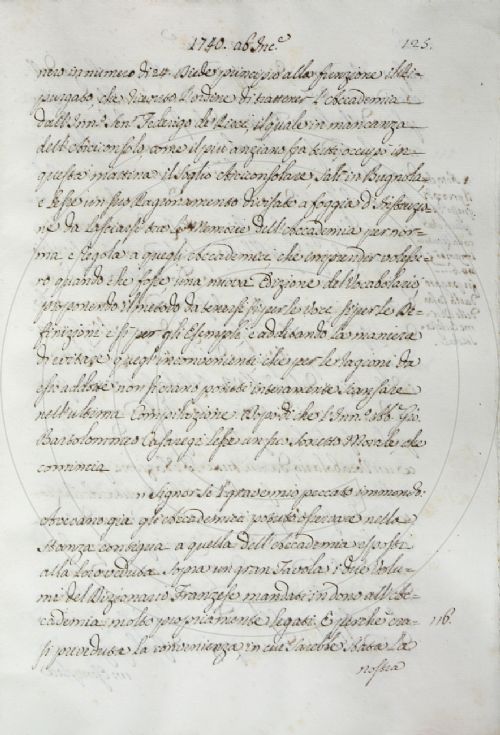 1740. ab Inc.e 125.
nero in numero di 24. Diede principio alla funzione il Ri-
purgato, che diceva l'ordine di trattener l'Accademia
dall'Inn.o Sen.r Federigo de' Ricci, il quale in mancanza
dell'Arciconsolo, come il più anziano fra tutti, occupò in
questa mattina il soglio Arciconsolare, Salì in Bugnola
e lesse un suo Ragionamento divisato a foggia d'Istruzio-
ne da lasciarsi tra le Memorie dell'Accademia per nor-
ma e Regola a quegli Accademici, che imprender volesse-
ro quando che fosse una nuova Edizione del Vocabolario
proponendo il metodo da tenersi sì per le Voci, sì per le De-
finizioni e sì per gli Esempli, e additando la maniera
di evitare quegl'inconvenienti, che per le ragioni da
esso addotte non si erano potuti interamente scansare
nell'ultima Compilazione. Dopo di che l'Inn.o Abb. Gio.
Bartolommeo Casaregi lesse un suo Sonetto Morale che
comincia
Signor, se
peccato immondo.
Avevano già gli Accademici potuto osservare nella
Stanza contigua a quella dell'Accademia esposti
alla loro veduta sopra un gran Tavola i due Volu-
mi del Dizionario Franzese mandati in dono all'Ac-
cademia molto propriamente legati. E perchè era- 116.
si preveduta la convenienza, in cui sarebbe stata la
nostra